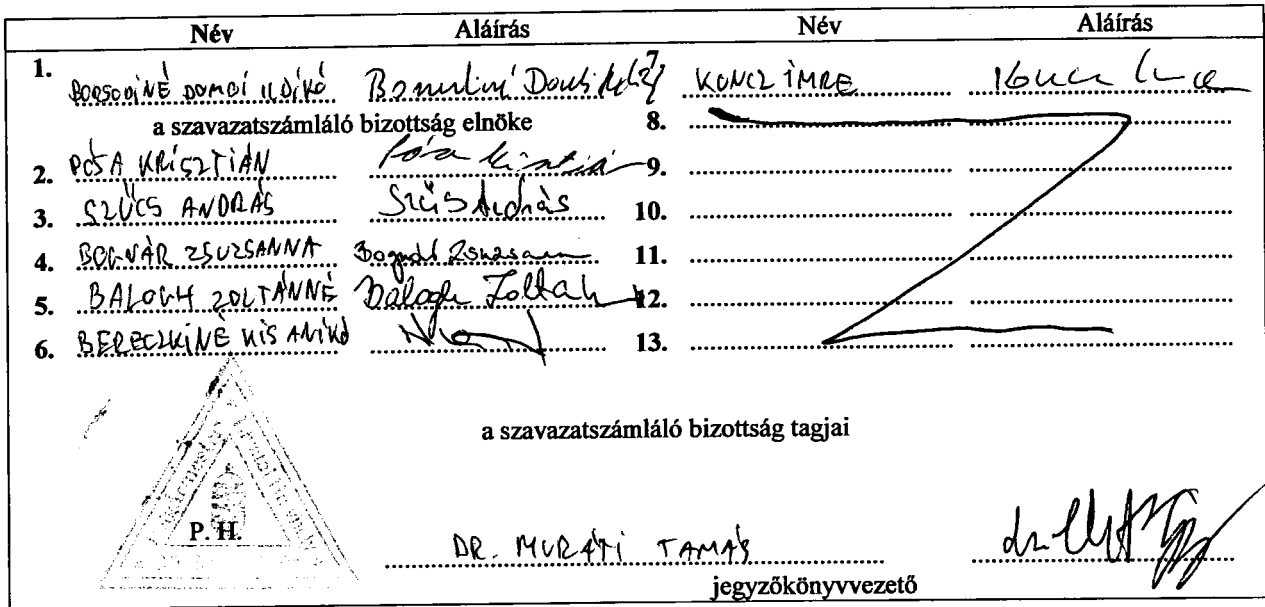 Név Aláírás Név Aláírás
1. BORSODINÉ DOMBI ILDIKÓ 7. KONCZ IMRE Koncz Imre
a szavazatszámláló bizottság elnöke 8.
2. PÓSA KRISZTIÁN Pósa Krisztián 9.
3. SZŰCS ANDRÁS Szűcs András 10.
4. BOGNÁR ZSUZSANNA Bognár Zsuzsanna 11.
5. BALOGH ZOLTÁNNÉ Balogh Zoltán 12.
6. BERECZKINÉ KIS ANIKÓ 13.
a szavazatszámláló bizottság tagjai
P. H.
DR. MURÁTI TAMÁS
jegyzőkönyvvezető